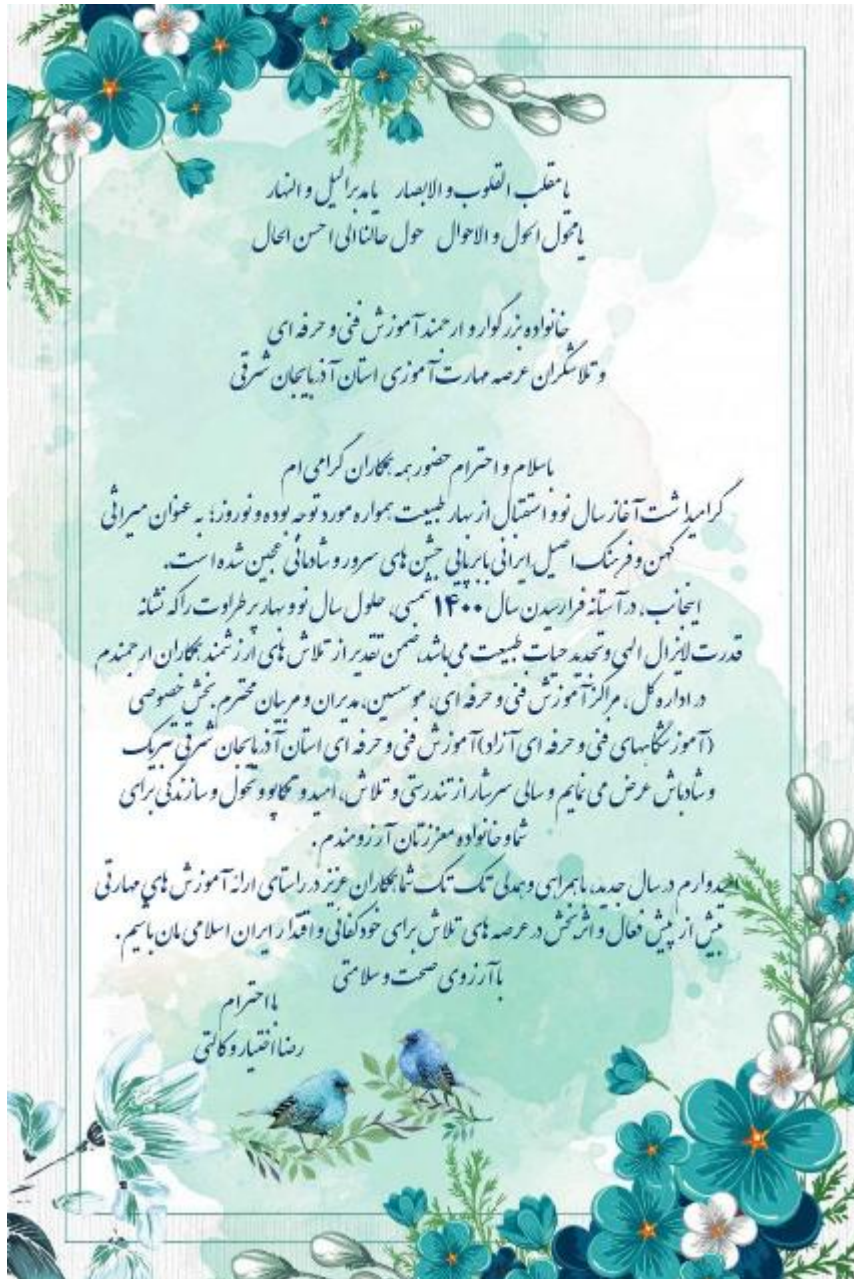 یا مقلب القلوب و الابصار   یا مدبر اللیل و النهار
یا محول الحول و الاحوال   حول حالنا الی احسن الحال
خانواده بزرگوار و ارجمند آموزش فنی و حرفه ای
و تلاشگران عرصه مهارت آموزی استان آذربایجان شرقی
باسلام و احترام حضور همه همکاران گرامی ام
گرامیداشت آغاز سال نو و استقبال از بهار طبیعت همواره مورد توجه بوده و نوروز؛ به عنوان میراثی
کهن و فرهنگ اصیل ایرانی با برپایی جشن های سرور و شادمانی عجین شده است.
اینجانب، در آستانه فرارسیدن سال ۱۴۰۰ شمسی، حلول سال نو و بهار پر طراوت را که نشانه
قدرت لایزال الهی و تجدید حیات طبیعت می باشد، ضمن تقدیر از تلاش های ارزشمند همکاران ارجمندم
در اداره کل، مراکز آموزش فنی و حرفه ای، موسسین، مدیران و مربیان محترم بخش خصوصی
(آموزشگاههای فنی و حرفه ای آزاد) آموزش فنی و حرفه ای استان آذربایجان شرقی تبریک
و شادباش عرض می نمایم و سالی سرشار از تندرستی و تلاش، امید و تکاپو و تحول و سازندگی برای
شما و خانواده معززتان آرزومندم.
امیدوارم در سال جدید، با همراهی و همدلی تک تک شما همکاران عزیز در راستای ارائه آموزش های مهارتی
بیش از پیش فعال و اثربخش در عرصه های تلاش برای خودکفائی و اقتدار ایران اسلامی مان باشیم.
با آرزوی صحت و سلامتی
با احترام
رضا اختیار وکالتی